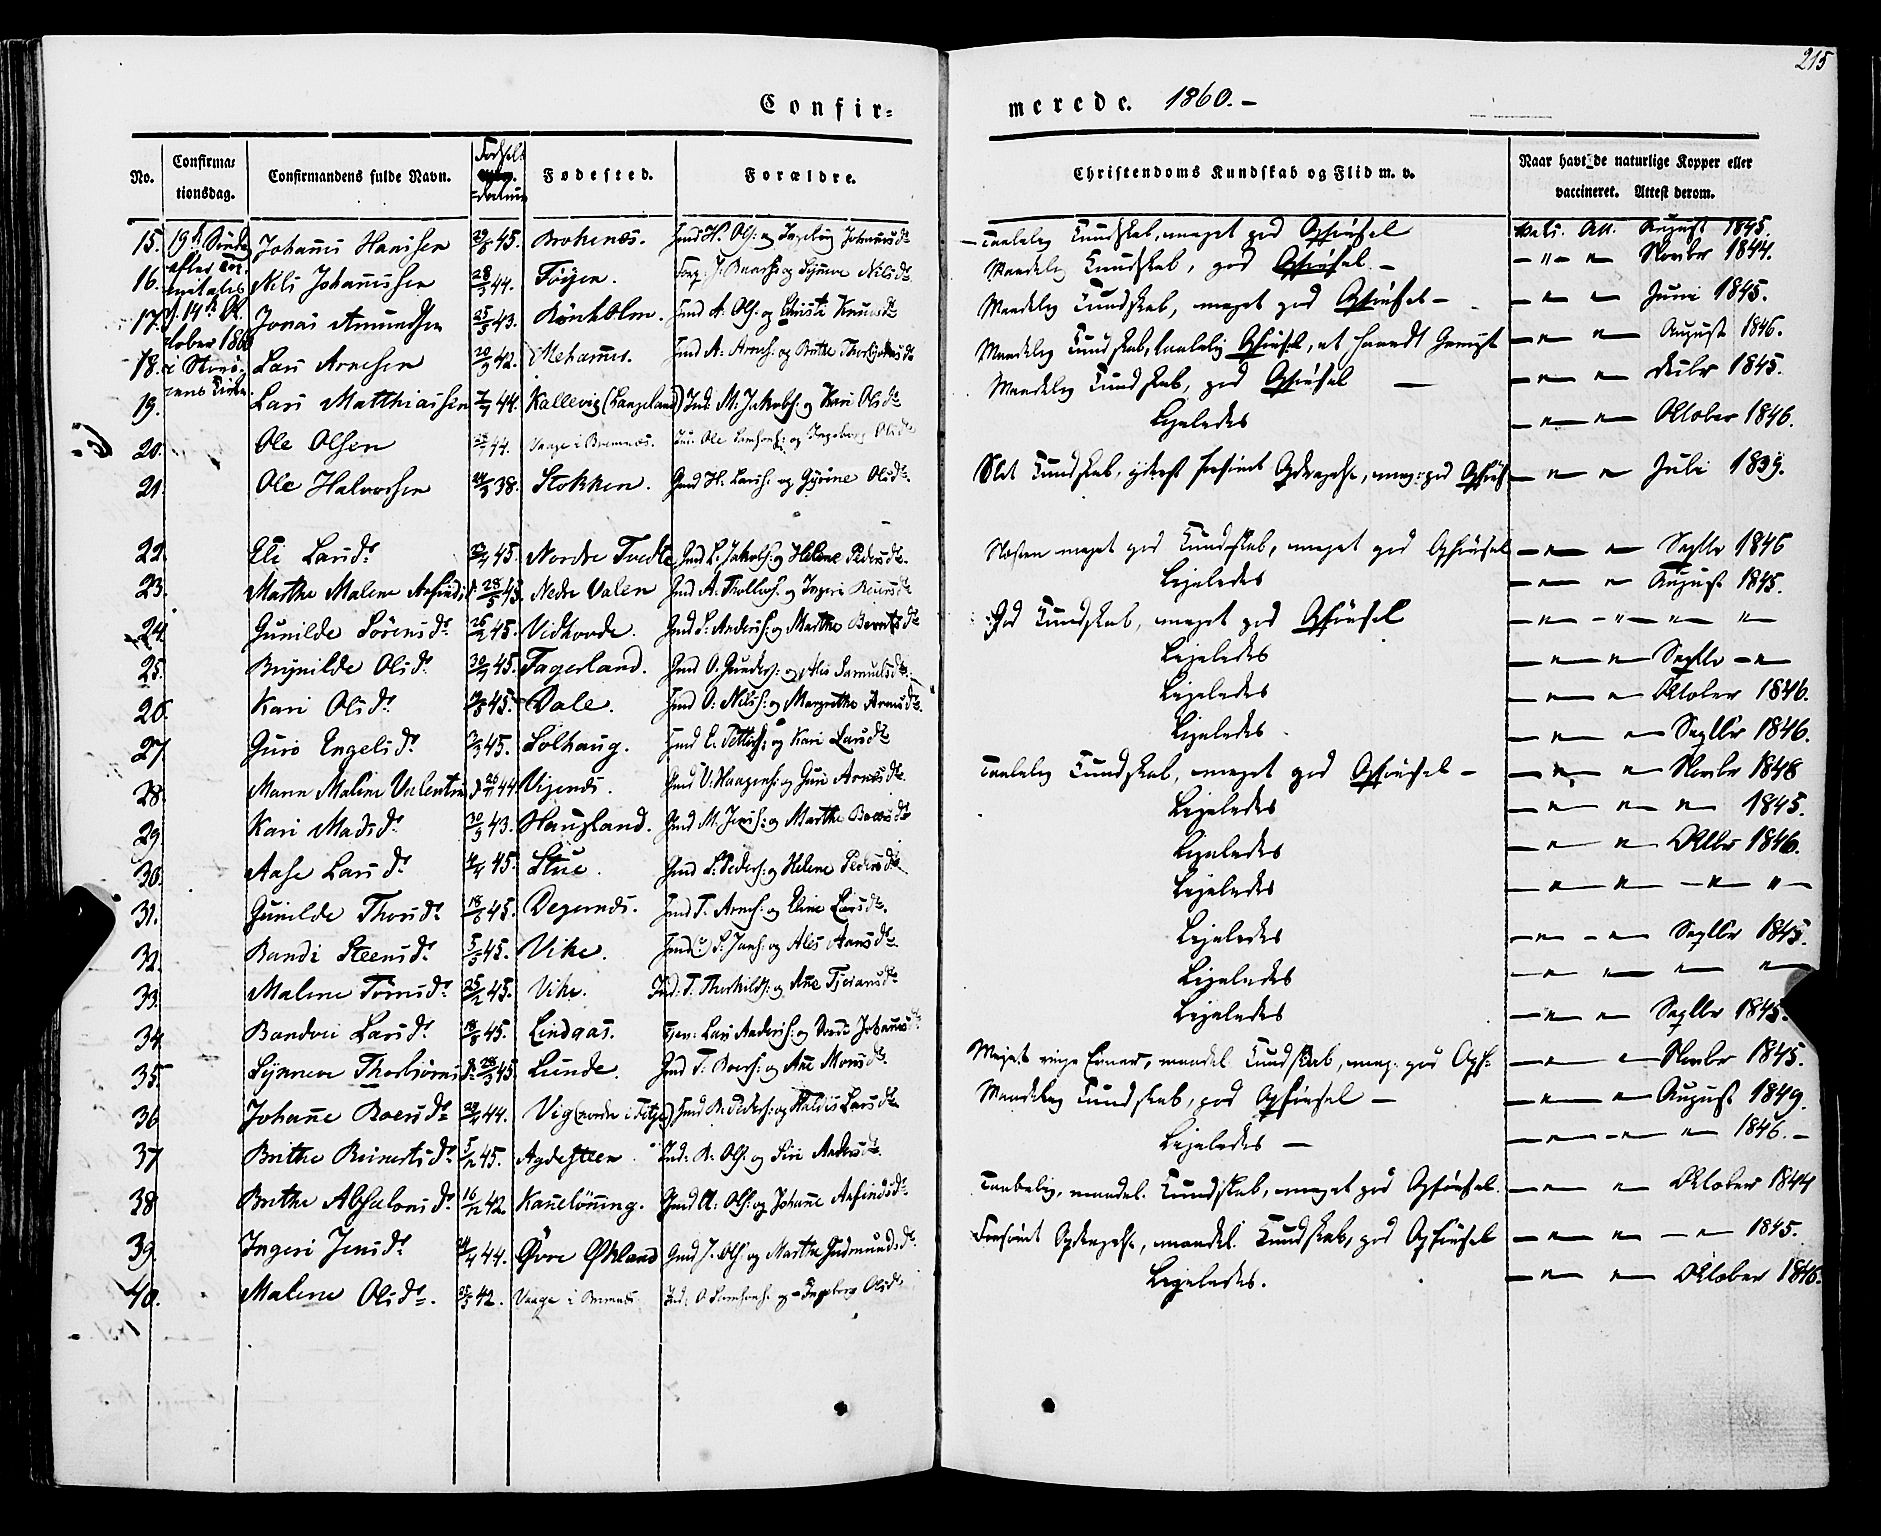 215
Confir= merede. 1860.-
No. Confirma=tionsdag. Confirmandens fulde Navn. Fødsels Datum Fødested. Forældre. Christendoms Kundskab og Flid m. v. Naar havt de naturlige Kopper eller vaccineret. Attest derom.
15. 19de Søndag Johannes Hansen 45. Brokenæs. Gmd H. Ols: og Ingeborg Johannesdr Taalelig Kundskab, meget god Opførsel Att. August 1845.
efter Tri=
16. nitatis Nils Johannessen 28/3 44. Føyen. og Synneve Nilsdr Maadelig Kundskab, god Opførsel - - " - " Novbr 1844.
17. d. 14de Ok= Jonas Amundsen 25/5 43. Rønholm. Gmd A. Ols: og Christi Knudsdr Maadelig Kundskab, meget god Opførsel - - " - " Juni 1845.
tober 1860
18. i Storø= Lars Arnesen 20/9 42. Mehamn. Gmd A. Arnes: og Brithe Maadelig Kundskab, taalelig Opførsel, et haardt Gemyt - " - " August 1846.
ens Kirke
19. Lars Matthiassen 7/7 44. Kallevig (Langeland) Ind. M. Jakobs: og Kari Olsdr Maadelig Kundskab, god Opførsel - - " - " 1845.
20. Ole Olsen 44. Vaage i Bremnæs. Ole og Ingeborg Olsdr Ligeledes - " - " Oktober 1846.
21. Ole Halvorsen 38. Stokken. Gmd H. Lars: og Gjørine Olsdr. Slet Kundskab, yderst forsømt Opdragelse, meg: god Opførs - " - " Juli 1839.
22. Eli Larsdr 45. Nordre Tvedte Gmd L. Jakobs: og Helene Pedersdr. Næsten meget god Kundskab, meget god Opførsel - " - " Septbr 1846
23. Marthe Malene Arfindsdr 28/5 45. Nedre Valen Gmd A. og Ingeri Ligeledes - " - " August 1845.
24. Gunilde Sørensdr 26/2 45. Vidhovde. Gmd S. Anders: og Marthe Berntsdr God Kundskab, meget god Opførsel - " - " - " "
25. Brynilde Olsdr. 30/7 45. Fagerland. Gmd O. Gunders: og Ales Samuelsdr. Ligeledes - " - " Septbr - "
26. Kari Olsdr. 45. Dale. Gmd O. Nils: og Margrethe Arnesdr. Ligeledes - " - " Oktober 1846.
27. Guro Engelsdr 45. Solhaug. Gmd E. Petters: og Kari Larsdr Ligeledes - " - " Septbr 1846.
28. Maren Malene Valentinsdr 44 Vigenæs. Gmd V. Haagens: og Guri Arnesdr. Taalelig Kundskab, meget god Opførsel - - " - " Novbr 1848
29. Kari Madsdr. 30/9 43. Haugland. Gmd M. Jens: og Marthe Boersdr Ligeledes - " - " - " 1845.
30. Aase Larsdr 45. Stue. Gmd L. Peders: og Helene Pedersdr. Ligeledes - " - " Oktbr 1846.
31. Gunilde Thorsdr 18/6 45. Degernæs. Gmd T. Arnes: og Eline Larsdr. Ligeledes - " - " - " "
32. Bandi Steensdr 5/5 45. Vike. Gmd S. Jans: og Ales Aansdr. Ligeledes - " - " Septbr 1845.
33. Malene Tønnesdr 25/2 45. Vike. Ind. T. Thorkilds: og Ane Ligeledes - " - " - " "
34. Bandvei Larsdr 18/8 45. Lindaas. Lars Anders: og Dorde Johannesdr Ligeledes - " - " Septbr 1845.
35. Synneve Thorbjørnsdr. 28/3 45. Lunde. Gmd T. Boers: og Ane Monsdr Meget ringe Evner, maadel. Kundskab, meg: god Opf: - " - " Novbr 1845.
36 Johanne Boersdr 44. Vig (nordre i Fitje) Gmd B. Peders: og Haldis Larsdr Maadelig Kundskab, god Opførsel - - " - " August 1849.
37 Brithe Reinertsdr 5/12 45. Agdesteen. Ind: R. Ols: og Siri Andersdr. Ligeledes - - " - " - " 1846.-
38 Brithe Absalonsdr. 16/12 42. Kanelønning. Gmd A. Ols: og Johanne Arfindsdr maadel. Kundskab, meget god Opførsel. - " - " Oktober 1844
39. Ingeri Jensdr 44. Øvre Økland Gmd J. Ols: og Marthe Gudmundsdr. Forsømt Opdragelse, maadel. Kundskab, god Opførsel - " - " - " 1845.
40. Malene Olsdr. 42. Vaage i Bremnæs. O. og Ingeborg Olsdr Ligeledes. - " - " Oktober 1846.